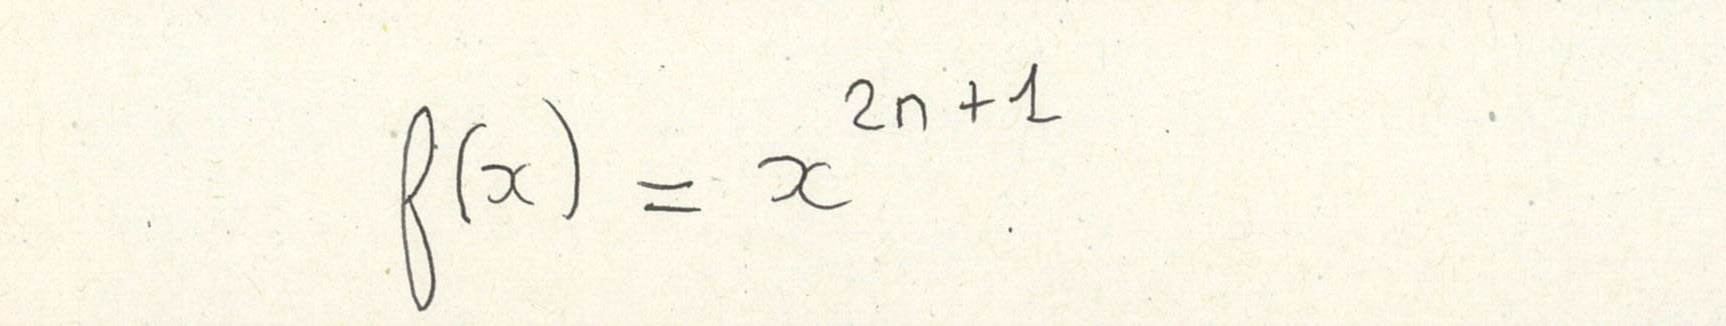 f(x) = x^{2n+1}